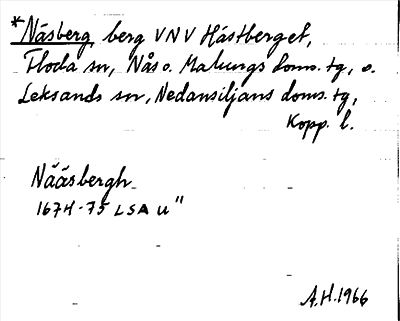 *Näsberg, berg VNV Hästberget,
Floda sn, Nås o. Malungs doms. tg, o.
Leksands sn, Nedansiljans doms. tg,
Kopp. l.
Nääsbergh
1674-75 LSA U"
A.H. 1966